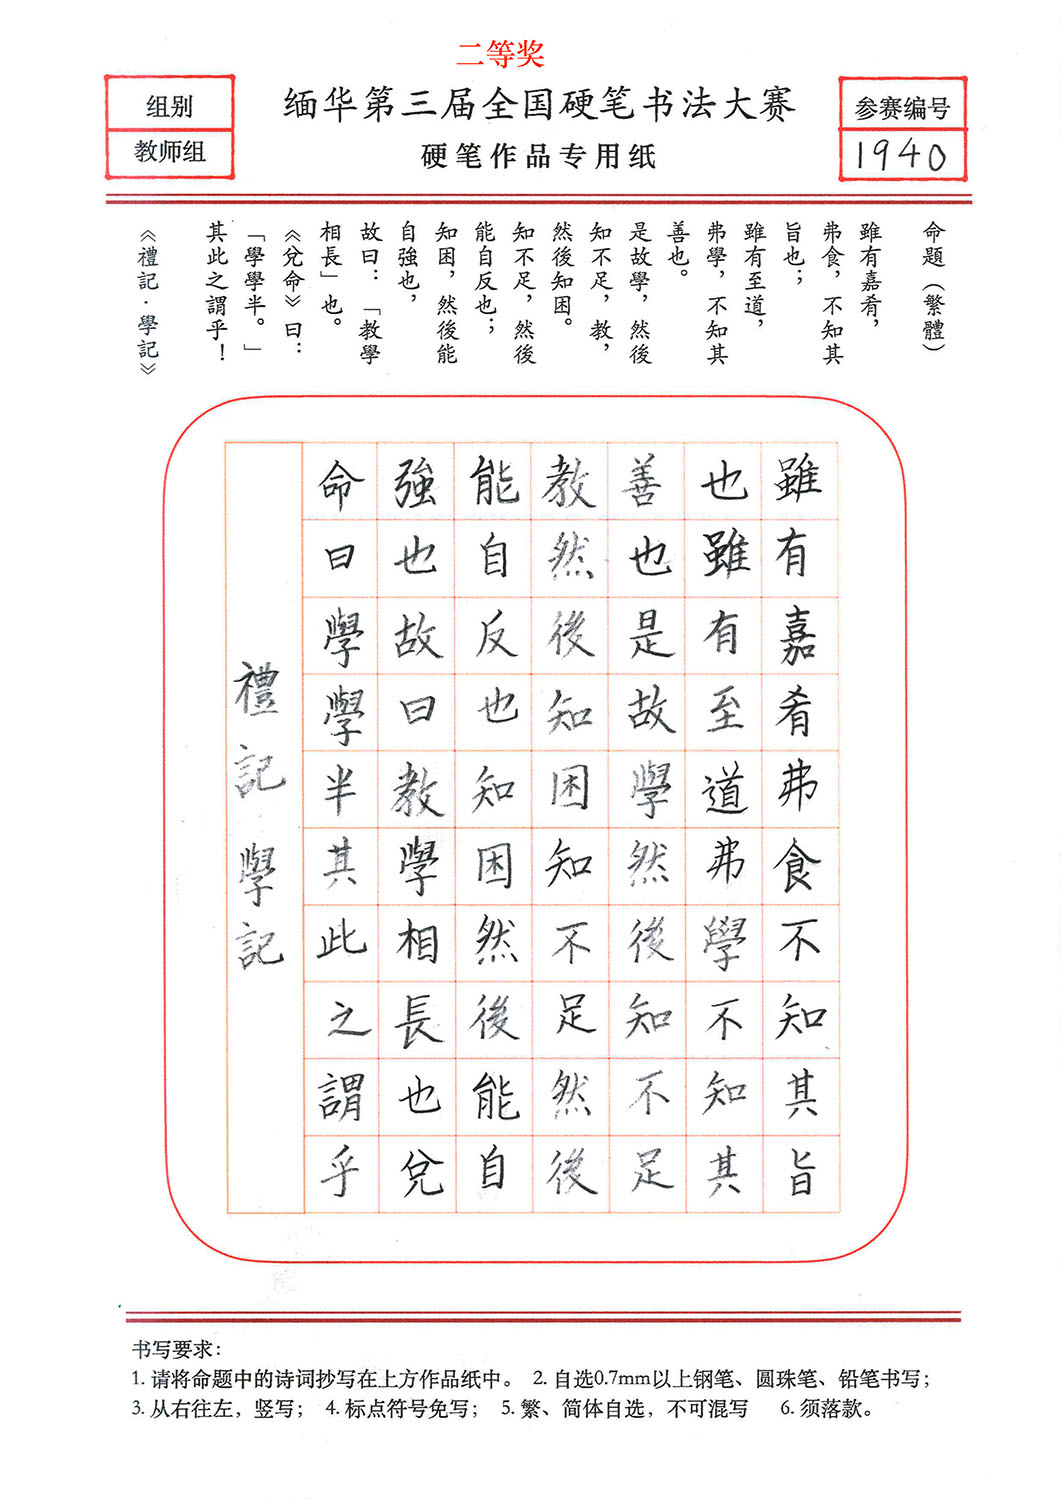 二等奖
组别
教师组
缅华第三届全国硬笔书法大赛
硬笔作品专用纸
参赛编号
1940
命題（繁體）
雖有嘉肴，
弗食，不知其
旨也；
雖有至道，
弗學，不知其
善也。
是故學，然後
知不足，教，
然後知困。
知不足，然後
能自反也；
知困，然後能
自強也，
故曰：「教學
相長」也。
《兌命》曰：
「學學半。」
其此之謂乎！
《禮記·學記》
雖有嘉肴弗食不知其旨
也雖有至道弗學不知其
善也是故學然後知不足
教然後知困知不足然後
能自反也知困然後能自
強也故曰教學相長也兌
命曰學學半其此之謂乎
禮記 學記
书写要求：
1. 请将命题中的诗词抄写在上方作品纸中。 2. 自选0.7mm以上钢笔、圆珠笔、铅笔书写；
3. 从右往左，竖写； 4. 标点符号免写； 5. 繁、简体自选，不可混写 6. 须落款。